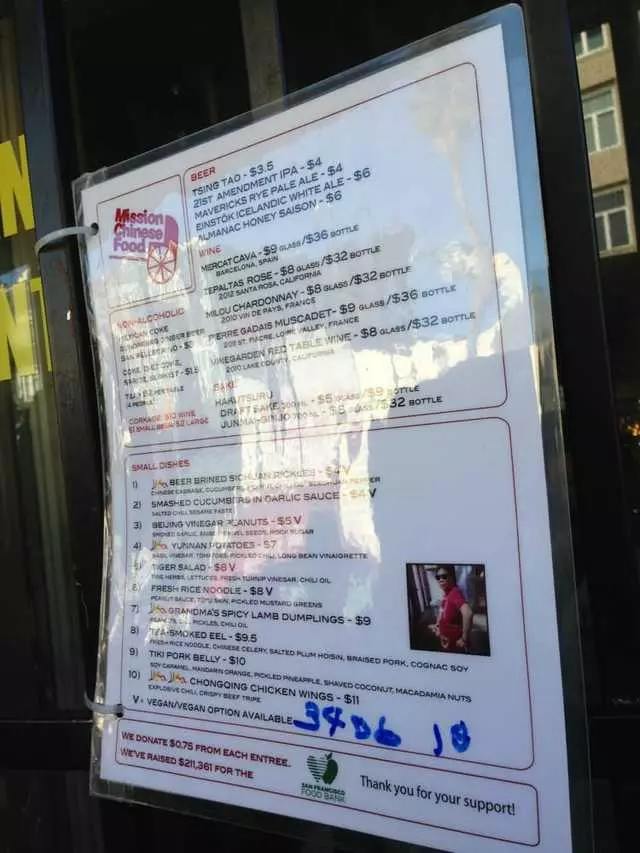 BEER
TSING TAO - $3.5
21ST AMENDMENT IPA - $4
MAVERICKS RYE PALE ALE - $4
EINSTÖK ICELANDIC WHITE ALE - $6
ALMANAC HONEY SAISON - $6
WINE
MERCAT CAVA - $9 GLASS/$36 BOTTLE
BARCELONA, SPAIN
TEPALTAS ROSE - $8 GLASS/$32 BOTTLE
2012 SANTA ROSA, CALIFORNIA
MILOU CHARDONNAY - $8 GLASS/$32 BOTTLE
2010 VIN DE PAYS, FRANCE
PIERRE GADAIS MUSCADET - $9 GLASS/$36 BOTTLE
2011 ST. FIACRE, LOIRE VALLEY, FRANCE
VINEGARDEN RED TABLE WINE - $8 GLASS/$32 BOTTLE
2010 LAKE COUNTY, CALIFORNIA
SAKE
HAKUTSURU
DRAFT SAKE 300 ML - $5 GLASS/$9 BOTTLE
JUNMAI GINJO 720 ML - $8 GLASS/$32 BOTTLE
Mission
Chinese
Food
NON-ALCOHOLIC
MEXICAN COKE
GINGER BEER
SAN PELLEGRINO - $3
COKE, DIET COKE,
SPRITE, SUNKIST - $1.5
TEA - $2 PER TABLE
CORKAGE: $10 WINE
$1 SMALL BEER/$2 LARGE
SMALL DISHES
1) BEER BRINED SICHUAN PICKLES - $4 V
CHINESE CABBAGE, CUCUMBERS, PEPPER
2) SMASHED CUCUMBERS IN GARLIC SAUCE - $4 V
SALTED CHILI, SESAME PASTE
3) BEIJING VINEGAR PEANUTS - $5 V
SMOKED GARLIC, ANISE, FENNEL SEEDS, ROCK SUGAR
4) YUNNAN POTATOES - $7
BASIL VINEGAR, TOMATOES, PICKLED CHILI, LONG BEAN VINAIGRETTE
5) TIGER SALAD - $8 V
FINE HERBS, LETTUCES, FRESH TURNIP VINEGAR, CHILI OIL
6) FRESH RICE NOODLE - $8 V
PEANUT SAUCE, TOFU SKIN, PICKLED MUSTARD GREENS
7) GRANDMA'S SPICY LAMB DUMPLINGS - $9
PEANUTS, DILL PICKLES, CHILI OIL
8) TEA-SMOKED EEL - $9.5
FRESH RICE NOODLE, CHINESE CELERY, SALTED PLUM HOISIN, BRAISED PORK, COGNAC SOY
9) TIKI PORK BELLY - $10
SOY CARAMEL, MANDARIN ORANGE, PICKLED PINEAPPLE, SHAVED COCONUT, MACADAMIA NUTS
10) CHONGQING CHICKEN WINGS - $11
EXPLOSIVE CHILI, CRISPY BEEF TRIPE
V = VEGAN/VEGAN OPTION AVAILABLE
WE DONATE $0.75 FROM EACH ENTREE.
WE'VE RAISED $211,361 FOR THE
SAN FRANCISCO
FOOD BANK
Thank you for your support!